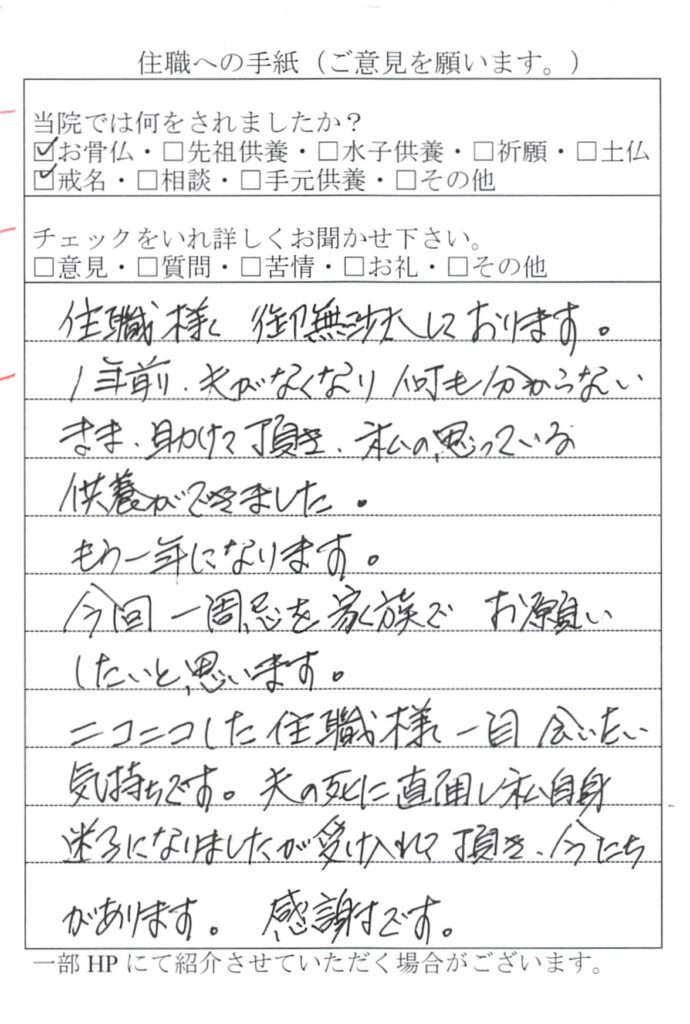 住職への手紙（ご意見を願います。）
当院では何をされましたか？
☑お骨仏・□先祖供養・□水子供養・□祈願・□土仏
☑戒名・□相談・□手元供養・□その他
チェックをいれ詳しくお聞かせ下さい。
□意見・□質問・□苦情・□お礼・□その他
住職様 御無沙汰しております。
1年前、夫がなくなり 何も分からない
まま、助けて頂き、私の思っている
供養ができました。
もう一年になります。
今回 一周忌を家族で お願い
したいと思います。
ニコニコした住職様に一目会いたい
気持ちです。夫の死に直面し私自身
迷子になりましたが受け入れて頂き、今たち
があります。 感謝です。
一部HPにて紹介させていただく場合がございます。